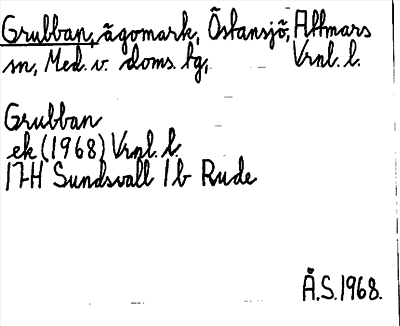 Grubban, ägomark, Östansjö, Attmars
sn, Med. v. doms. tg, Vrnl. l.
Grubban
ek (1968) Vrnl. l.
17H Sundsvall 1b Rude
Å.S. 1968.